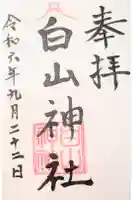 奉拝
白山神社
令和六年九月二十二日